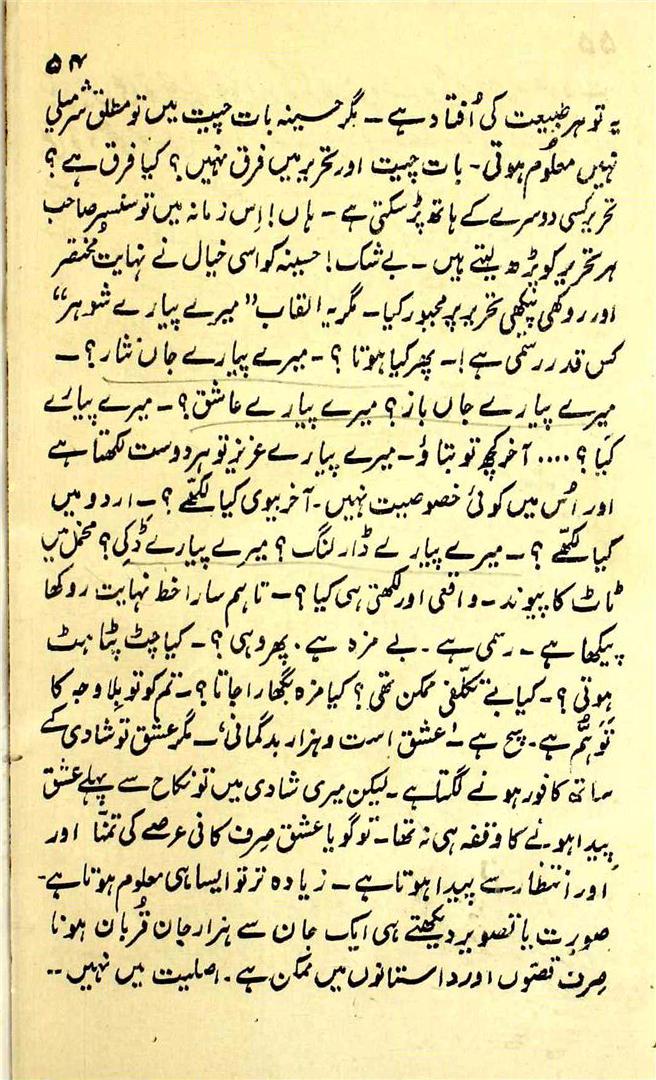 ۵۴
یہ تو ہر طبیعت کی اُفتاد ہے ۔ مگر حسینہ بات چیت میں تو مطلق شرمیلی
نہیں معلوم ہوتی ۔ بات چیت اور تحریر میں فرق نہیں؟ کیا فرق ہے؟
تحریر کسی دوسرے کے ہاتھ پڑ سکتی ہے ۔ ہاں! اِس زمانہ میں تو سنسر صاحب
ہر تحریر کو پڑھ لیتے ہیں ۔ بے شک! حسینہ کو اسی خیال نے نہایت مختصر
اور روکھی پھیکھی تحریر پر مجبور کیا ۔ مگر یہ القاب ”میرے پیارے شوہر“
کس قدر رسمی ہے! ۔ پھر کیا ہوتا؟ ۔ میرے پیارے جاں نثار؟ ۔
میرے پیارے جاں باز؟ میرے پیارے عاشق؟ ۔ میرے پیارے
کیا؟ .... آخر کچھ تو بتاؤ ۔ میرے پیارے عزیز تو ہر دوست لکھتا ہے
اور اُس میں کوئی خصوصیت نہیں ۔ آخر بیوی کیا لکھّے؟ ۔ اردو میں
کیا لکھّے؟ ۔ میرے پیارے ڈارلنگ؟ میرے پیارے ڈکی؟ مخمل میں
ٹاٹ کا پیوند ۔ واقعی اور لکھتی ہی کیا؟ ۔ تاہم سارا خط نہایت روکھا
پیکھا ہے ۔ رسمی ہے ۔ بے مزہ ہے ۔ پھر وہی؟ ۔ کیا چٹ پٹا ہٹ
ہوتی؟ ۔ کیا بے تکلّفی ممکن تھی؟ کیا مزہ بگھارا جاتا؟ ۔ تم کو تو بلا وجہ کا
تَوہُّم ہے ۔ سچ ہے ۔ ’عشق است و ہزار بدگمانی‘ ۔ مگر عشق تو شادی کے
ساتھ کافور ہونے لگتا ہے ۔ لیکن میری شادی میں تو نکاح سے پہلے عشق
پیدا ہونے کا وقفہ ہی نہ تھا ۔ تو گویا عشق صِرف کافی عرصے کی تمنّا اور
اور انتظار سے پیدا ہوتا ہے ۔ زیادہ تر تو ایسا ہی معلوم ہوتا ہے ۔
صورت یا تصویر دیکھتے ہی ایک جان سے ہزار جان قُربان ہونا
صِرف قصّوں اور داستانوں میں ممکن ہے ۔ اصلیت میں نہیں ۔۔